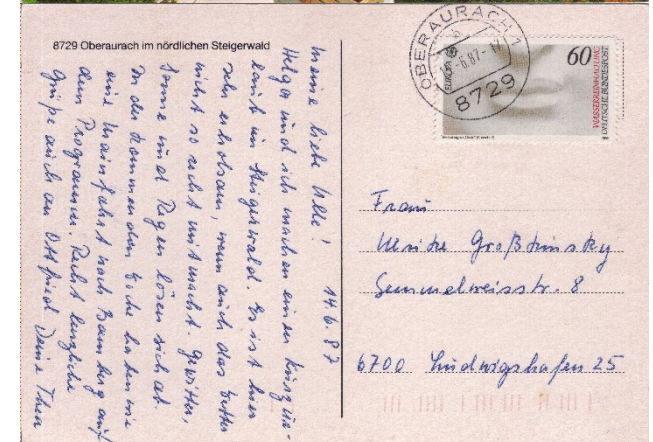 8729 Oberaurach im nördlichen Steigerwald
14.6.87
Meine liebe Ulle!
Helga und ich machen einen Kurzur-
laub im Steigerwald. Es ist hier
sehr erholsam, wenn auch das Wetter
nicht so recht mitmacht. Gewitter,
Sonne und Regen lösen sich ab.
In der kommenden Woche haben wir
eine Mainfahrt nach Bamberg auf
dem Programm. Recht herzliche
Grüße auch an Ottfried Deine Thea
OBERAURACH 1
-6.87-
8729
60
WASSERREINHALTUNG
DEUTSCHE BUNDESPOST
EUROPA
Frau
Ulrike Großkinsky
Semmelweisstr. 8
6700 Ludwigshafen 25